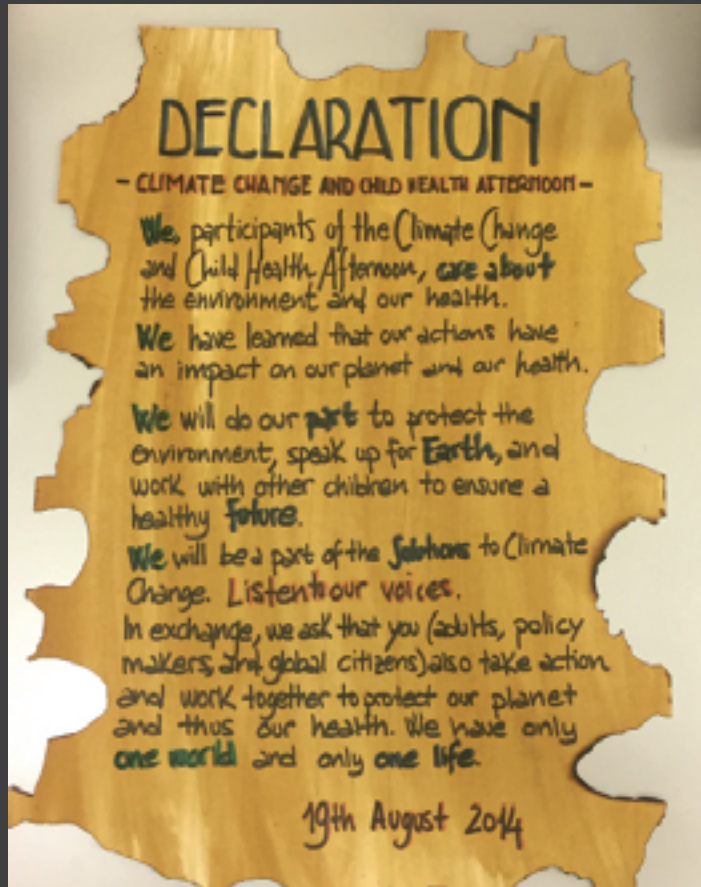 DECLARATION
- CLIMATE CHANGE AND CHILD HEALTH AFTERNOON -
We, participants of the Climate Change
and Child Health Afternoon, care about
the environment and our health.
We have learned that our actions have
an impact on our planet and our health.
We will do our part to protect the
environment, speak up for Earth, and
work with other children to ensure a
healthy future.
We will be a part of the Solutions to Climate
Change. Listen to our voices.
In exchange, we ask that you (adults, policy
makers, and global citizens) also take action
and work together to protect our planet
and thus our health. We have only
one world and only one life.
19th August 2014